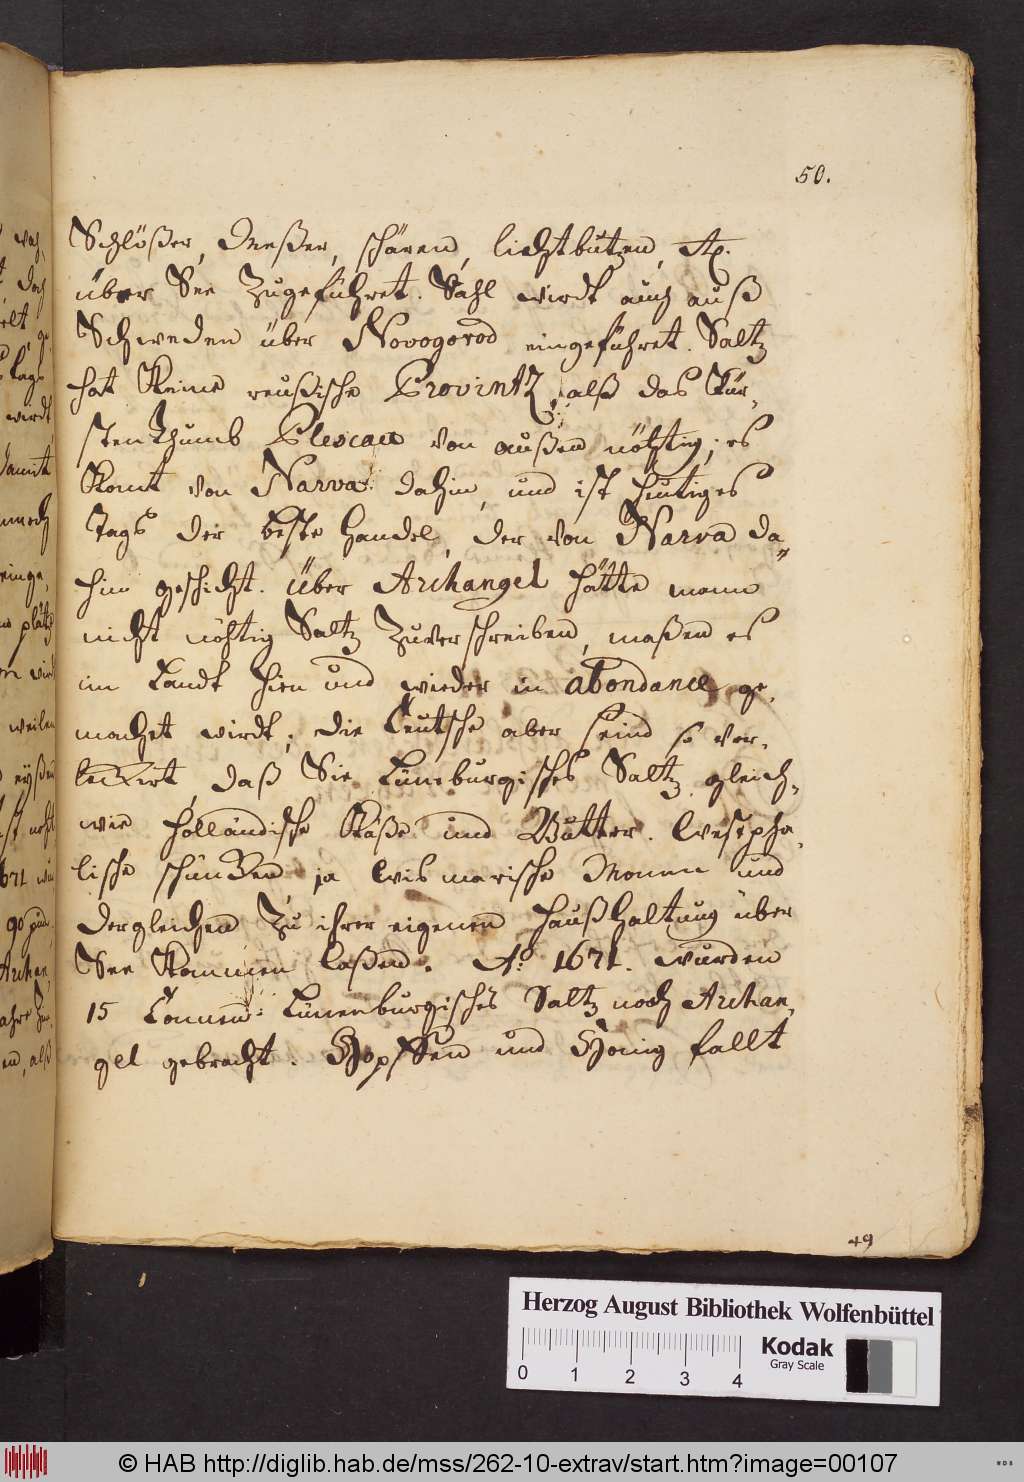 50.
Schlößer, Meßer, schären, lichtbutzen, etc.
über See Zugeführet. Stahl wirdt auch auß
Schweden über Novogorod eingeführet. Saltz
hat Keine reußische Provintz, alß das Für-
stenthumb Plescau von außen nöhtig; es
Komt von Narva dahin, und ist heutiges
Tags der beste handel, der von Narva da-
hin geschicht. Über Archangel hätte mann
nicht nöhtig Saltz Zuverschreiben, maßen es
im Landt hien und wieder in abondance ge-
machet wirdt; die Teutsche aber seind so ver-
leckert, daß Sie Lüneburgisches Saltz gleich-
wie holländische Käße und Butter. Westpha-
lische schuncken ja Wismarische Monen und
dergleichen Zu ihrer eigenen haußhaltung über
See Kommen laßen. Aº 1671. wurden
15 Tonnen Lüneburgisches Saltz nach Archan-
gel gebracht. Hopffen und Honig fallt
49
Herzog August Bibliothek Wolfenbüttel
Kodak
Gray Scale
0 1 2 3 4
© HAB http://diglib.hab.de/mss/262-10-extrav/start.htm?image=00107